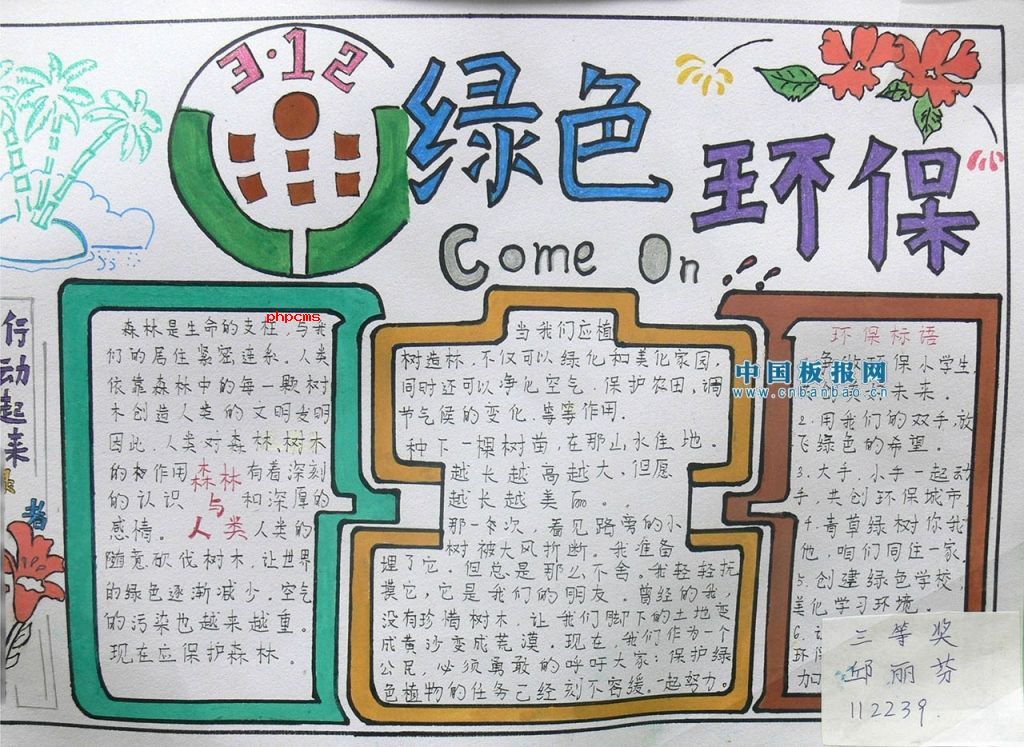 3·12
绿色
环保
Come On
行动起来
森林是生命的支柱,与我
们的居住紧密连系。人类
依靠森林中的每一颗树
木创造人类的文明发明
因此,人类对森林,树木
的和作用森林有着深刻
的认识与和深厚的
感情。人类人类的
随意砍伐树木,让世界
的绿色逐渐减少。空气
的污染也越来越重。
现在应保护森林。
phpcms
当我们应植
树造林,不仅可以绿化和美化家园,
同时还可以净化空气、保护农田,调
节气候的变化。等等作用.
种下一棵树苗,在那山水佳地.
越长越高越大,但愿
越长越美丽。
那一次,看见路旁的小
树被大风折断。我准备
埋了它,但总是那么不舍。我轻轻抚
摸它,它是我们的朋友。曾经的我,
没有珍惜树木,让我们脚下的土地变
成黄沙变成荒漠。现在,我们作为一个
公民,必须勇敢的呼吁大家:保护绿
色植物的任务已经刻不容缓,一起努力。
环保标语
争做环保小学生,
未来.
中国板报网
www.cnbanbao.cn
2.用我们的双手,放
飞绿色的希望.
3.大手,小手一起动
手,共创环保城市,
4.青草绿树你我
他,咱们同住一家
5.创建绿色学校,
美化学习环境。
6.
环保
加
三等奖
邱丽芬
112239.